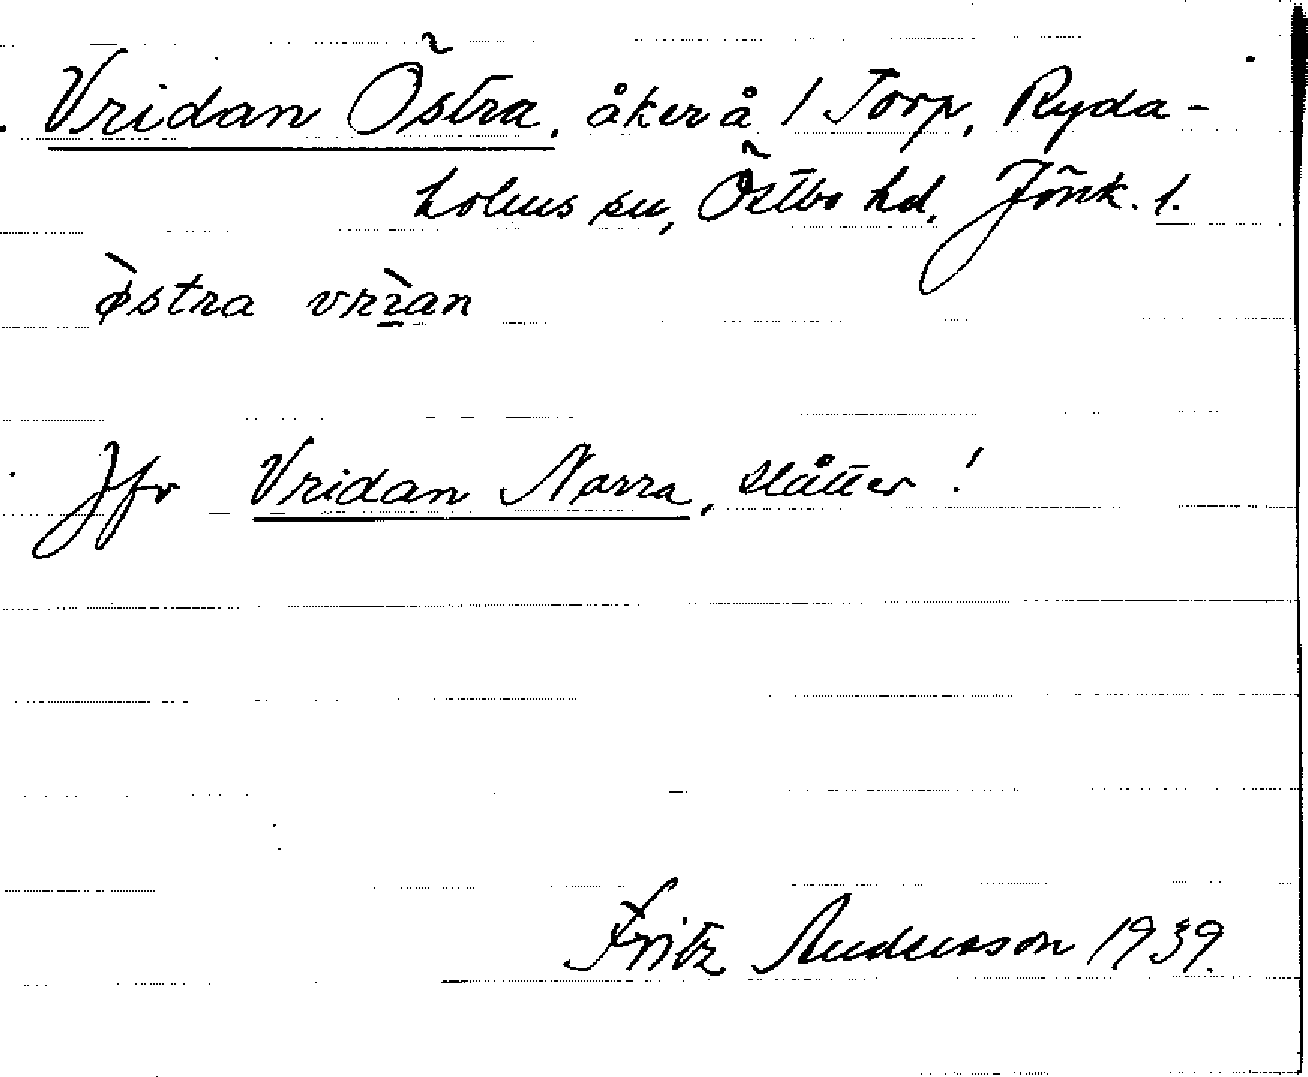 Vridan Östra, åker å 1 Torp, Ryda-
holms sn, Östbo hd, Jönk. l.
ø̀stra vrı̱̀an
Jfr Vridan Norra, slåtter!
Fritz Andersson 1939.